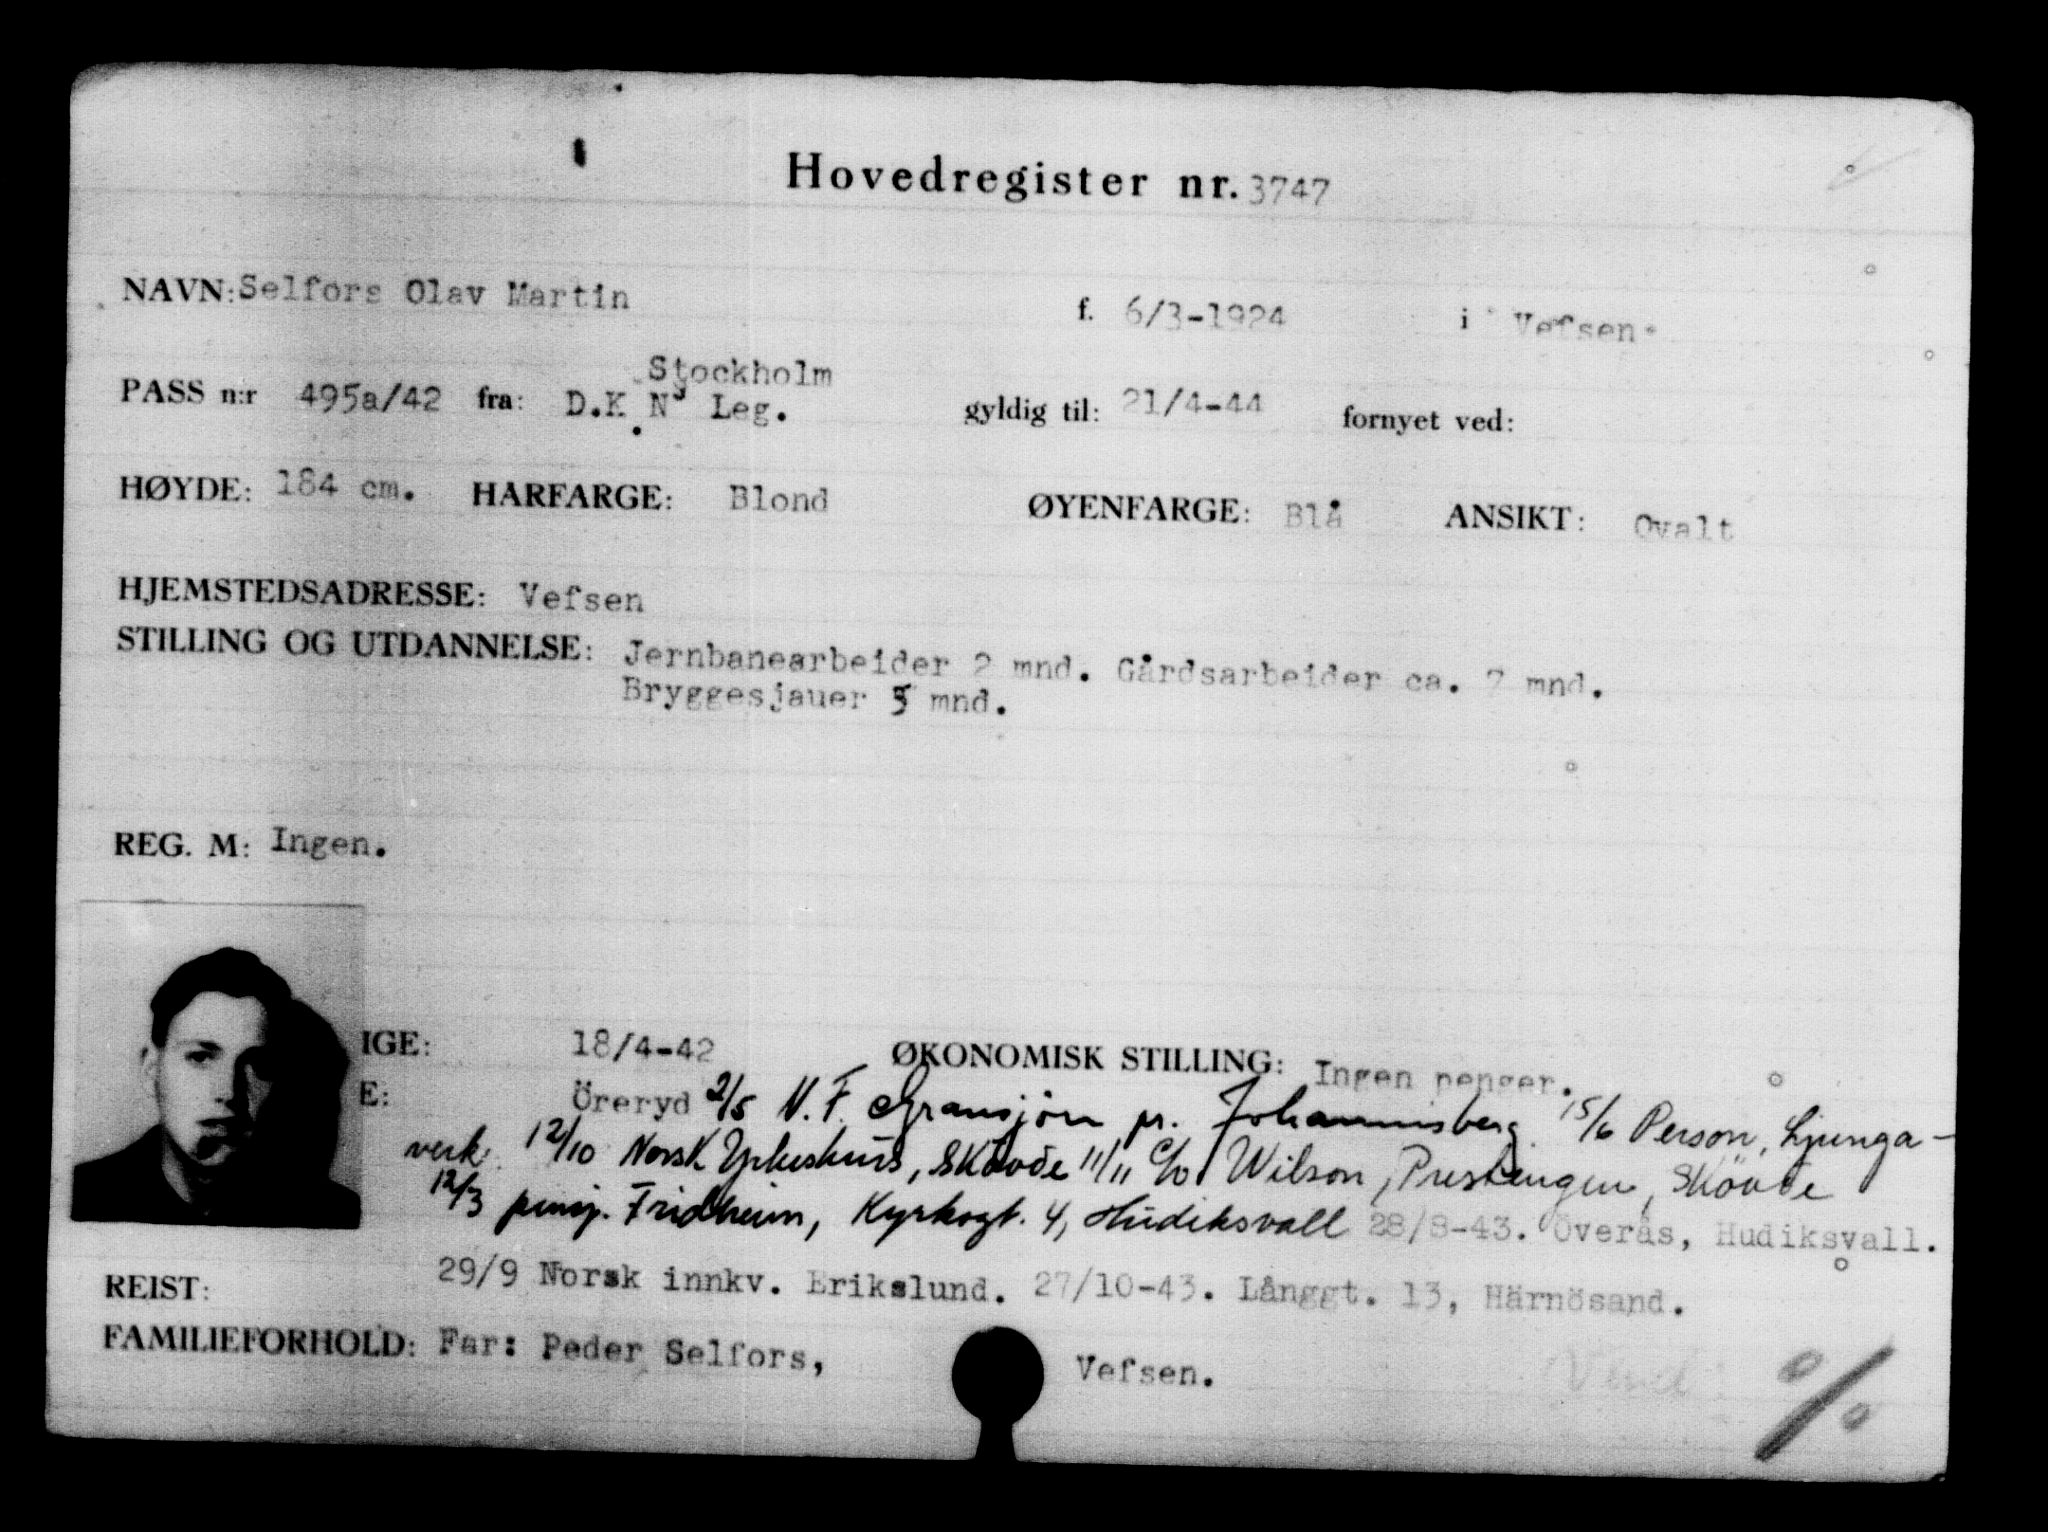 Hovedregister nr. 3747
NAVN: Selfors Olav Martin f. 6/3-1924 i Vefsen.
Stockholm
PASS n:r 495a/42 fra: D.K.N. Leg. gyldig til: 21/4-44 fornyet ved:
HØYDE: 184 cm. HARFARGE: Blond ØYENFARGE: Blå ANSIKT: Ovalt
HJEMSTEDSADRESSE: Vefsen
STILLING OG UTDANNELSE: Jernbanearbeider 2 mnd. Gårdsarbeider ca. 7 mnd.
Bryggesjauer 5 mnd.
REG. M: Ingen.
IGE: 18/4-42 ØKONOMISK STILLING: Ingen penger.
E: Öreryd 2/5 N.F. Gransjön pr. Johannisberg. 15/6 Person, Ljunga-
verk. 12/10 Norsk Yrkeskurs, Skövde 11/11 c/o Wilson, Prestengen, Skövde
12/3 pensj. Fridheim, Kyrkogt. 4, Hudiksvall 28/8-43. Överås, Hudiksvall.
29/9 Norsk innkv. Erikslund. 27/10-43. Långgt. 13, Härnösand.
REIST:
FAMILIEFORHOLD: Far: Peder Selfors, Vefsen.
Vend %